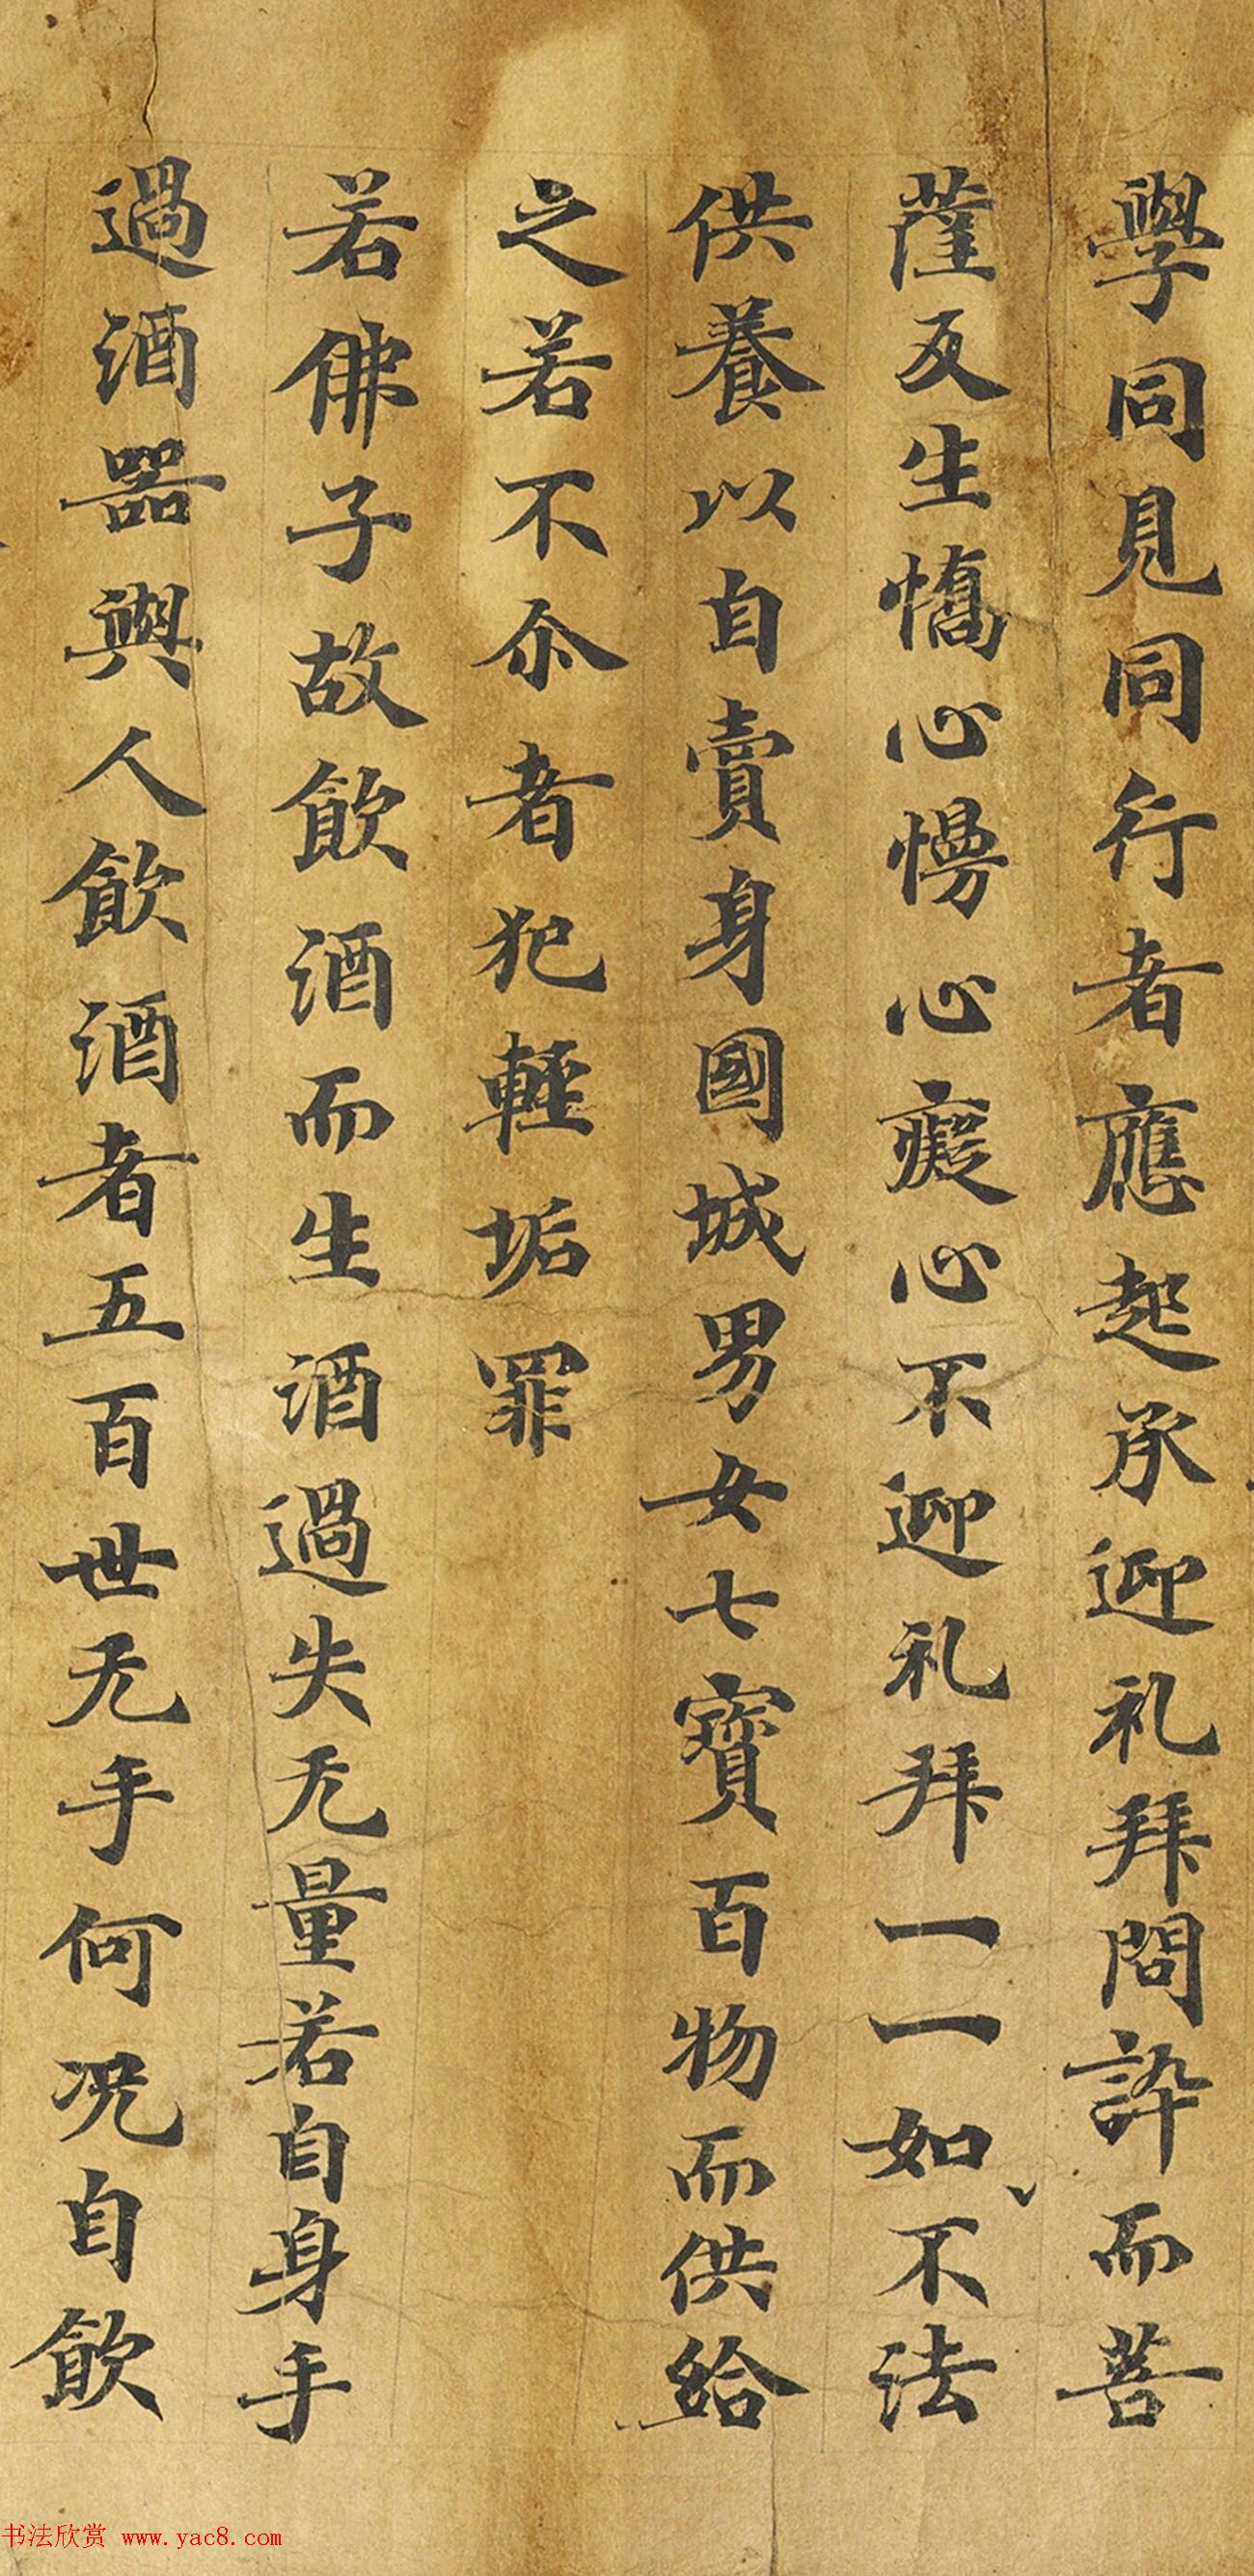 學同見同行者應起承迎礼拜問訊而菩
薩反生憍心慢心癡心不迎礼拜一一如不法
供養以自賣身國城男女七寶百物而供給
之若不尒者犯輕垢罪
若佛子故飲酒而生酒過失无量若自身手
過酒器與人飲酒者五百世无手何况自飲
书法欣赏 www.yac8.com